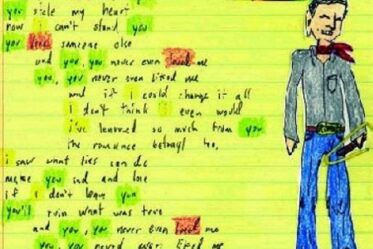 you stole my heart
now i can't stand you
you someone else
and you, you never even loved me
you, you never even liked me
and if i could change it all
i don't think i even would
i've learned so much from you
the romance betrayl to,
i saw what lies can do
me you and love
if i don't leave you
you'll ruin what was true
and you, you never even me
you, you never even liked me